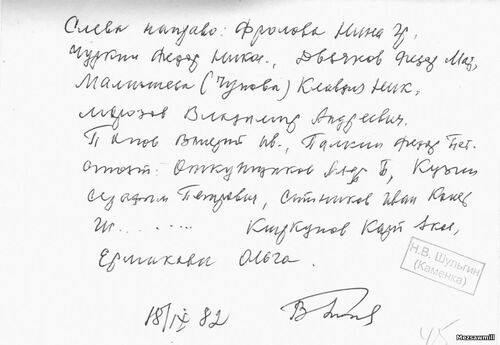 Слева направо: Фролова Нина Гр,
Чуркин Федор Никол., Дьячков Федор Мат,
Малышева (Чупова) Клавдия Ник,
Морозов Владимир Андреевич.
Попов Валерий Ив., Палкин Федор Пет.
стоят: Откупщиков Алдр Б, Кузин
Серафим Петрович, Ситников Иван
Киркунов Карп
Ермакова Ольга.
18/IX 82
Н.В. Шульгин
(Каменка)
45
Mezsawmill